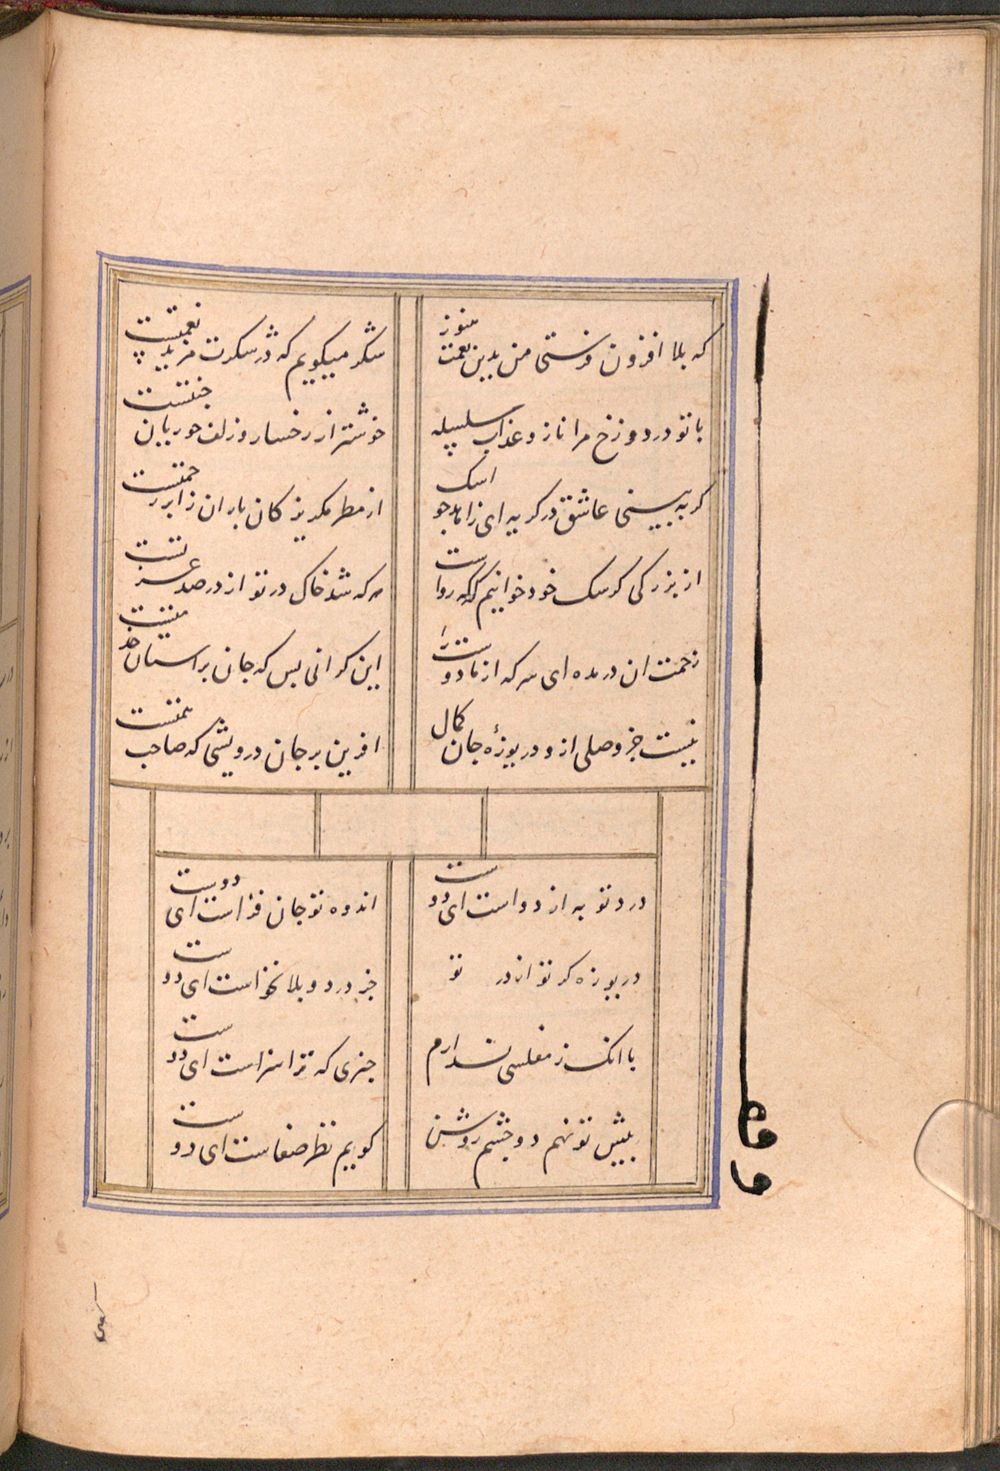 که بلا افزون فرستی من بدین نعمت هنوز
شکر میگویم که در شکرت مزید نعمتست
با تو در دوزخ مرا ناز و عذاب سلسله
خوشتر از رخسار و زلف حوریان جنتست
کر به بینی عاشقی در کریه ای زاهد جو اشک
از مطر مکریز کان باران ز ابر رحمتست
از بزرکی کر سک خود خوانیم که که رواست
هر که شد خاک در تو از در صد عزتست
زحمت ان در مده ای سر که از ما دوست را
این کرانی بس که جان بر استان خدمتست
نیست جز وصلی از و دریوزه جان کمال
افرین بر جان درویشی که صاحب همتست
درد تو به از دواست ای دوست
اندوه تو جان فزاست ای دوست
دریوزه کر تو از در تو
جز درد و بلا نخواست ای دوست
با انک ز مفلسی ندارم
چیزی که ترا سزاست ای دوست
پیش تو نهم دو چشم روشن
کویم نظر صفاست ای دوست